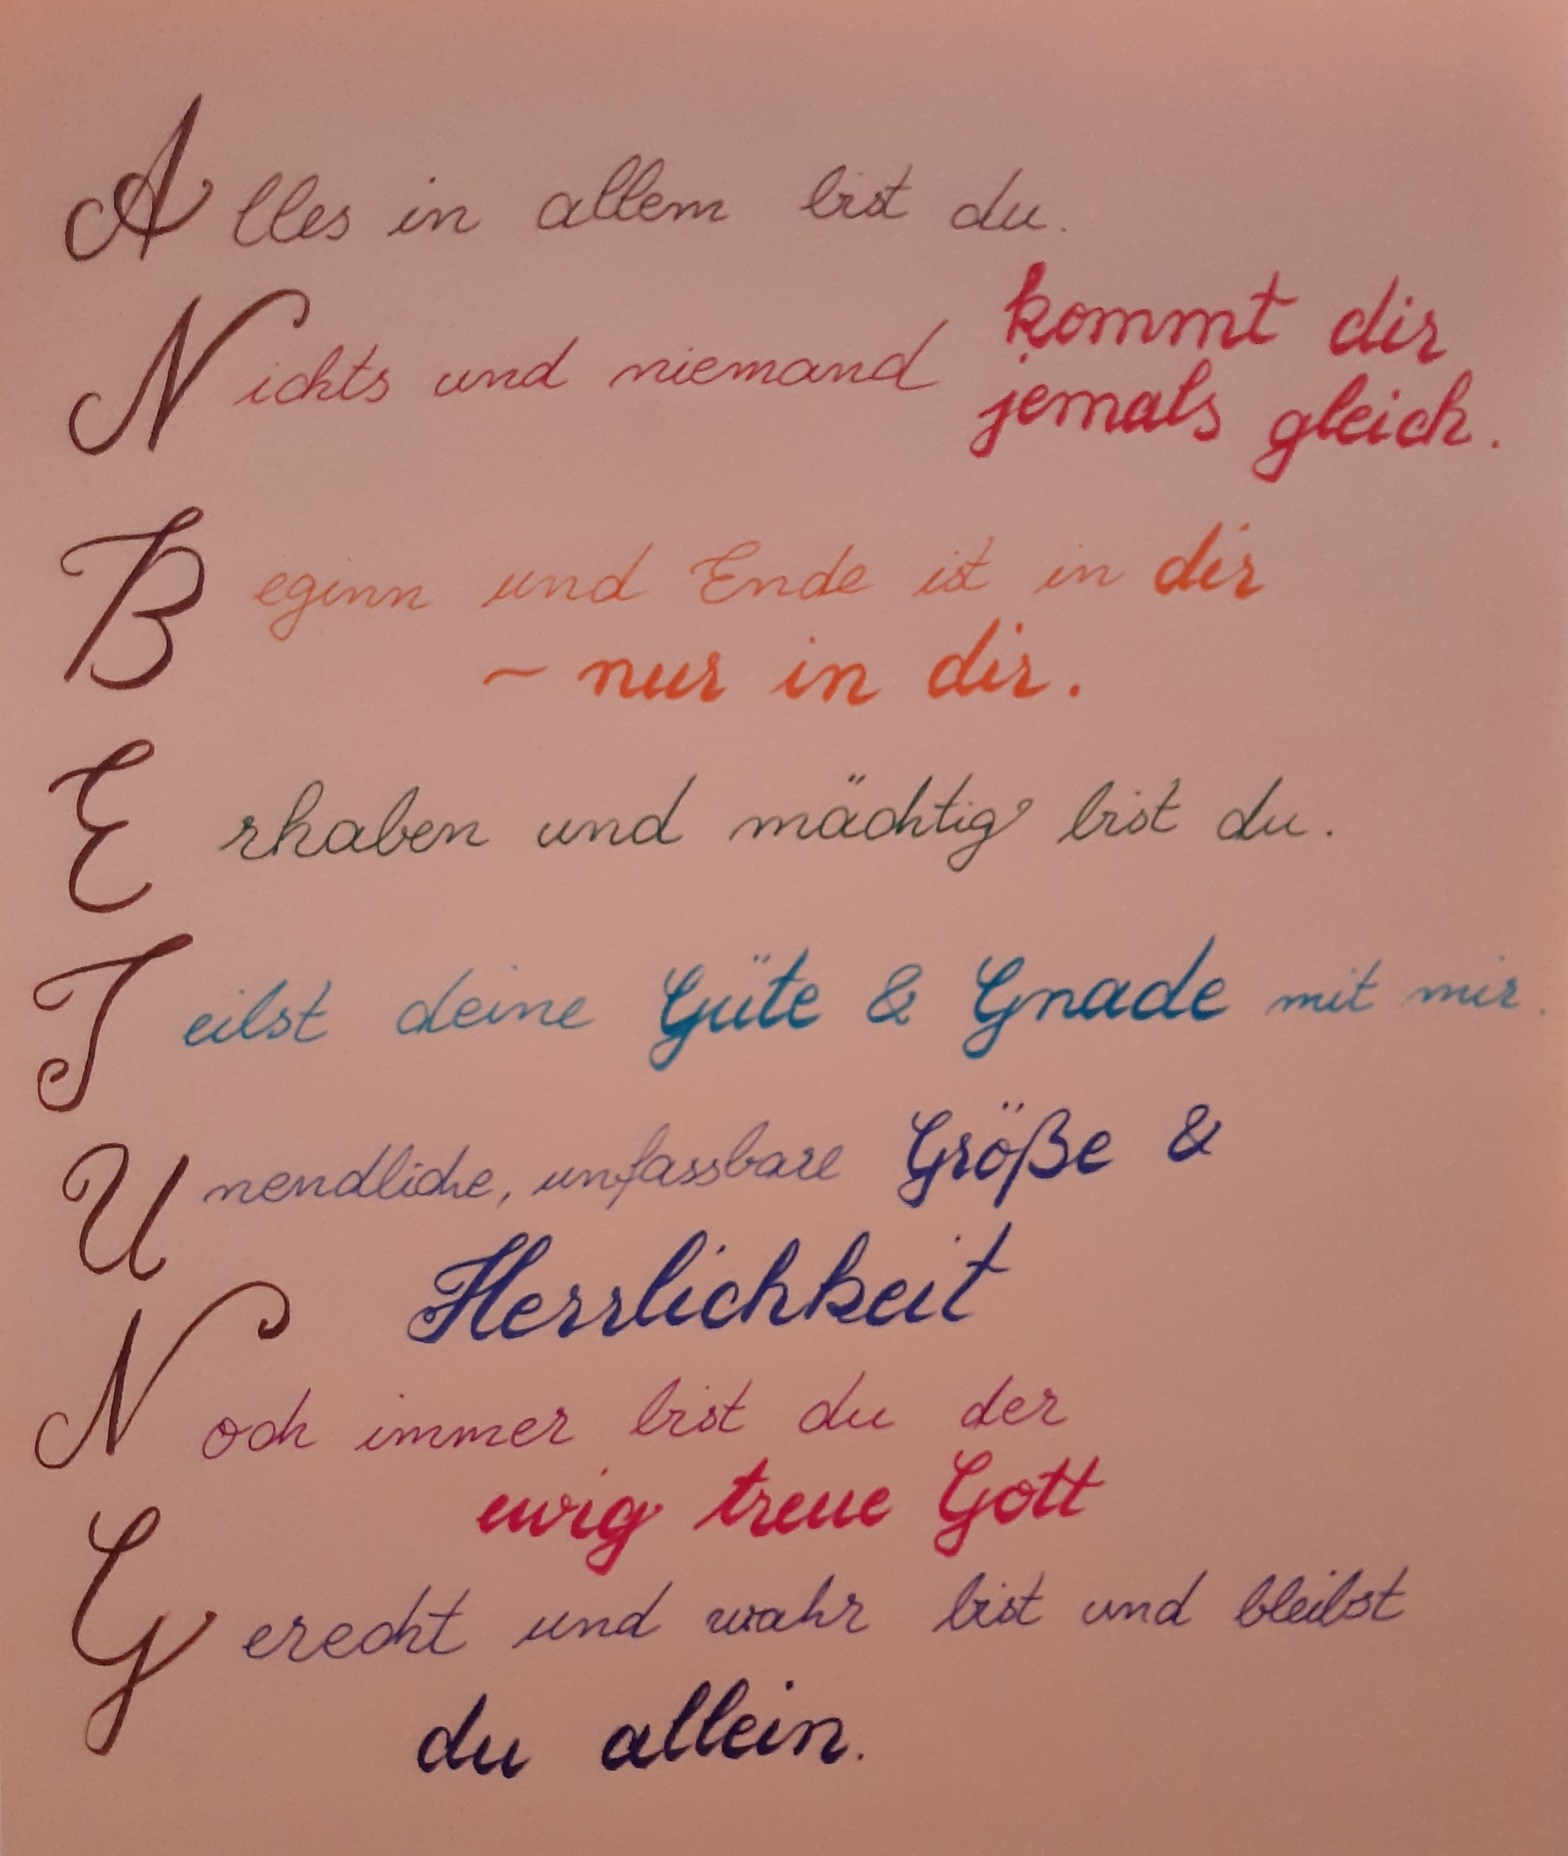 Alles in allem bist du.
Nichts und niemand kommt dir
jemals gleich.
Beginn und Ende ist in dir
~ nur in dir.
Erhaben und mächtig bist du.
Teilst deine Güte & Gnade mit mir.
Unendliche, unfassbare Größe &
Herrlichkeit
Noch immer bist du der
ewig treue Gott
Gerecht und wahr bist und bleibst
du allein.